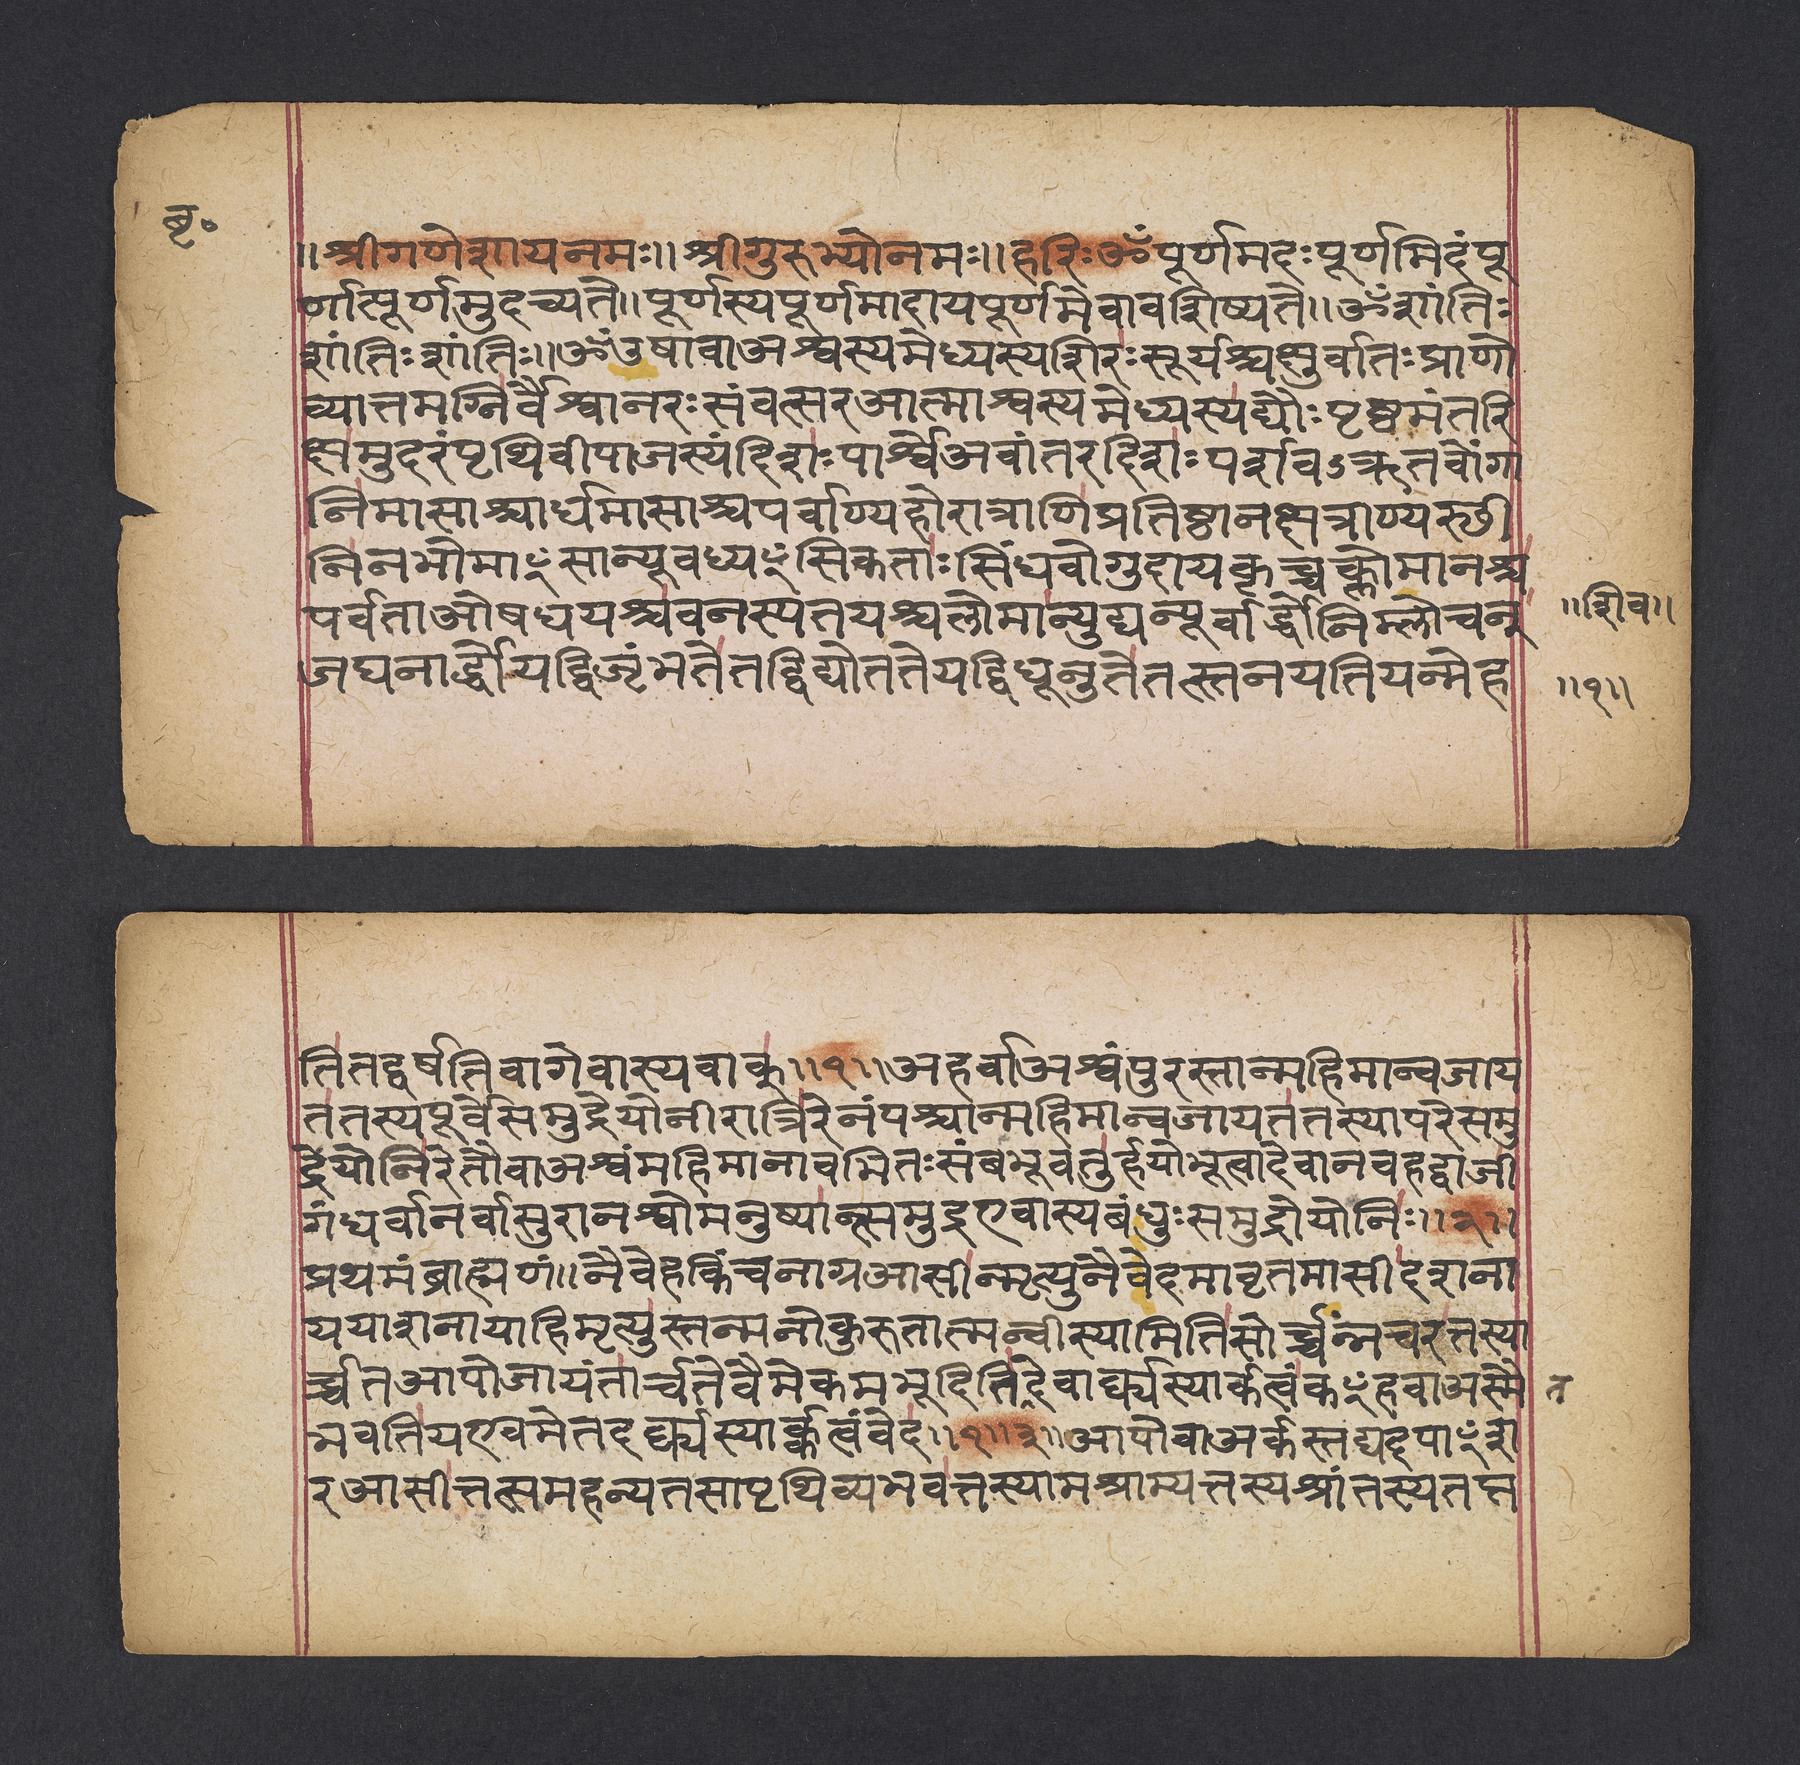 बृ॰
॥श्रीगणेशायनमः॥श्रीगुरुभ्योनमः॥हरिःॐपूर्णमदःपूर्णमिदंपू
र्णात्पूर्णमुदच्यते॥पूर्णस्यपूर्णमादायपूर्णमेवावशिष्यते॥ॐशांतिः
शांतिःशांतिः॥ॐउषावाअश्वस्यमेध्यस्यशिरःसूर्यश्चक्षुर्वातःप्राणो
व्यात्तमग्निर्वैश्वानरःसंवत्सरआत्माश्वस्यमेध्यस्यद्यौःपृष्ठमंतरि
क्षमुदरंपृथिवीपाजस्यंदिशःपार्श्वेअवांतरदिशःपर्शवऽऋतवोंगा
निमासाश्चार्धमासाश्चपर्वाण्यहोरात्राणिप्रतिष्ठानक्षत्राण्यस्छी
निनभोमाꣳसान्यूवध्यꣳसिकताःसिंधवोगुदायकृच्चक्लोमानश्च
पर्वताओषधयश्चवनस्पतयश्चलोमान्युद्यन्पूर्वार्द्धोनिम्लोचन्
॥शिव॥
जघनार्द्धोयद्विजृंभतेतद्विद्योततेयद्विधूनुतेतत्स्तनयतियन्मेह
॥१॥
तितद्वर्षतिवागेवास्यवाक्॥१॥अहर्वाअश्वंपुरस्तान्महिमान्वजाय
ततस्यपूर्वेसमुद्रेयोनीरात्रिरेनंपश्चान्महिमान्वजायततस्यापरेसमु
द्रेयोनिरेतौवाअश्वंमहिमानावभितःसंबभूवतुर्हयोभूत्वादेवानवहद्वाजी
गंधर्वानर्वासुरानश्वोमनुष्यान्त्समुद्रएवास्यबंधुःसमुद्रोयोनिः॥२॥
प्रथमंब्राह्मणं॥नैवेहकिंचनाग्रआसीन्मृत्युनैवेदमावृतमासीदशना
ययाशनायाहिमृत्युस्तन्मनोकुरुतात्मन्वीस्यामितिसोर्च्चन्नचरत्तस्या
र्च्चतआपोजायंतार्चतेवैमेकमभूदितिदेवार्क्यस्यार्कत्वंकꣳहवाअस्मै
त
भवतियएवमेतदर्क्यस्यार्क्कत्वंवेद॥१॥३॥आपोवाअर्कस्तद्यदपाꣳश
रआसीत्तत्समहन्यतसापृथिव्यभवत्तस्यामश्राम्यत्तस्यश्रांतस्यतप्त